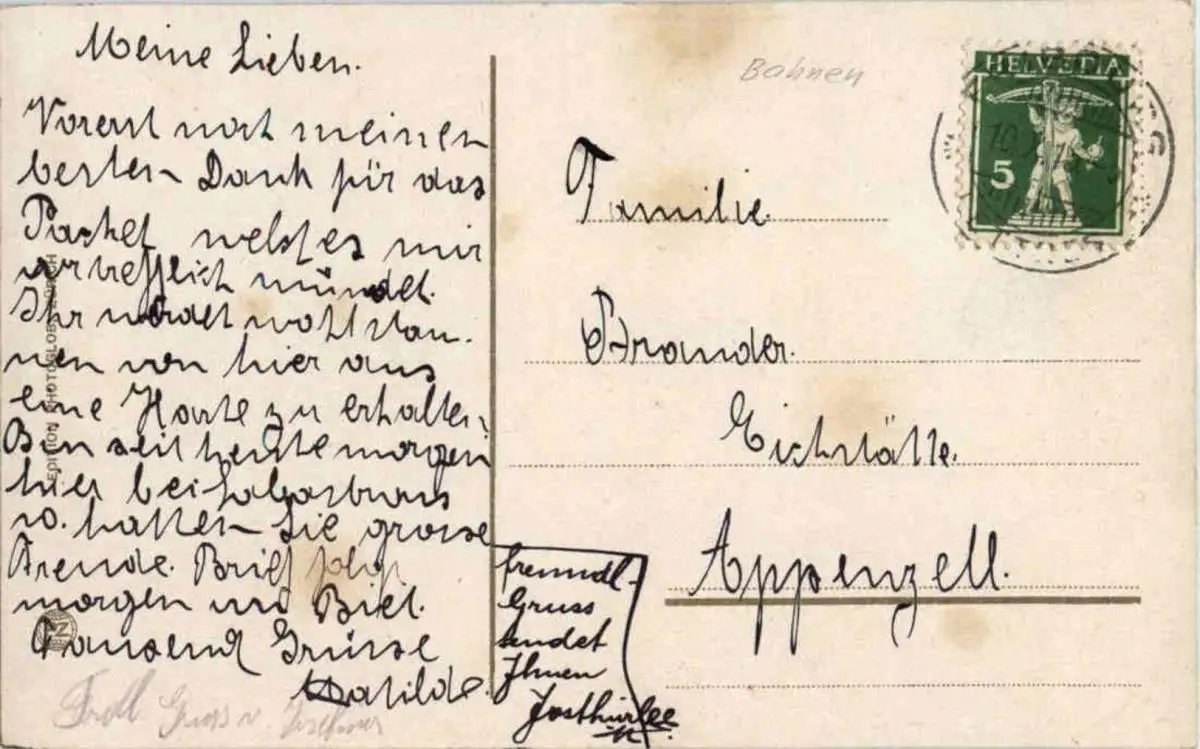 Meine Lieben.
Vorerst noch meinen
besten Dank für das
Packet welches mir
vortrefflich mündet.
Ihr werdet wohl stau-
nen von hier aus
eine Karte zu erhalten.
Bin seit heute morgen
hier bei
u. hatten Sie grosse
Freude. Brief folgt
morgen von Biel.
Tausend Grüsse
Matilde.
freundl-
Gruss
sendet
Ihnen
Frdl Gruss v.
EDITION PHOTOGLOB ZÜRICH
PZ
Bahnen
HELVETIA
5
Familie
Brander.
Eichstätte.
Appenzell.